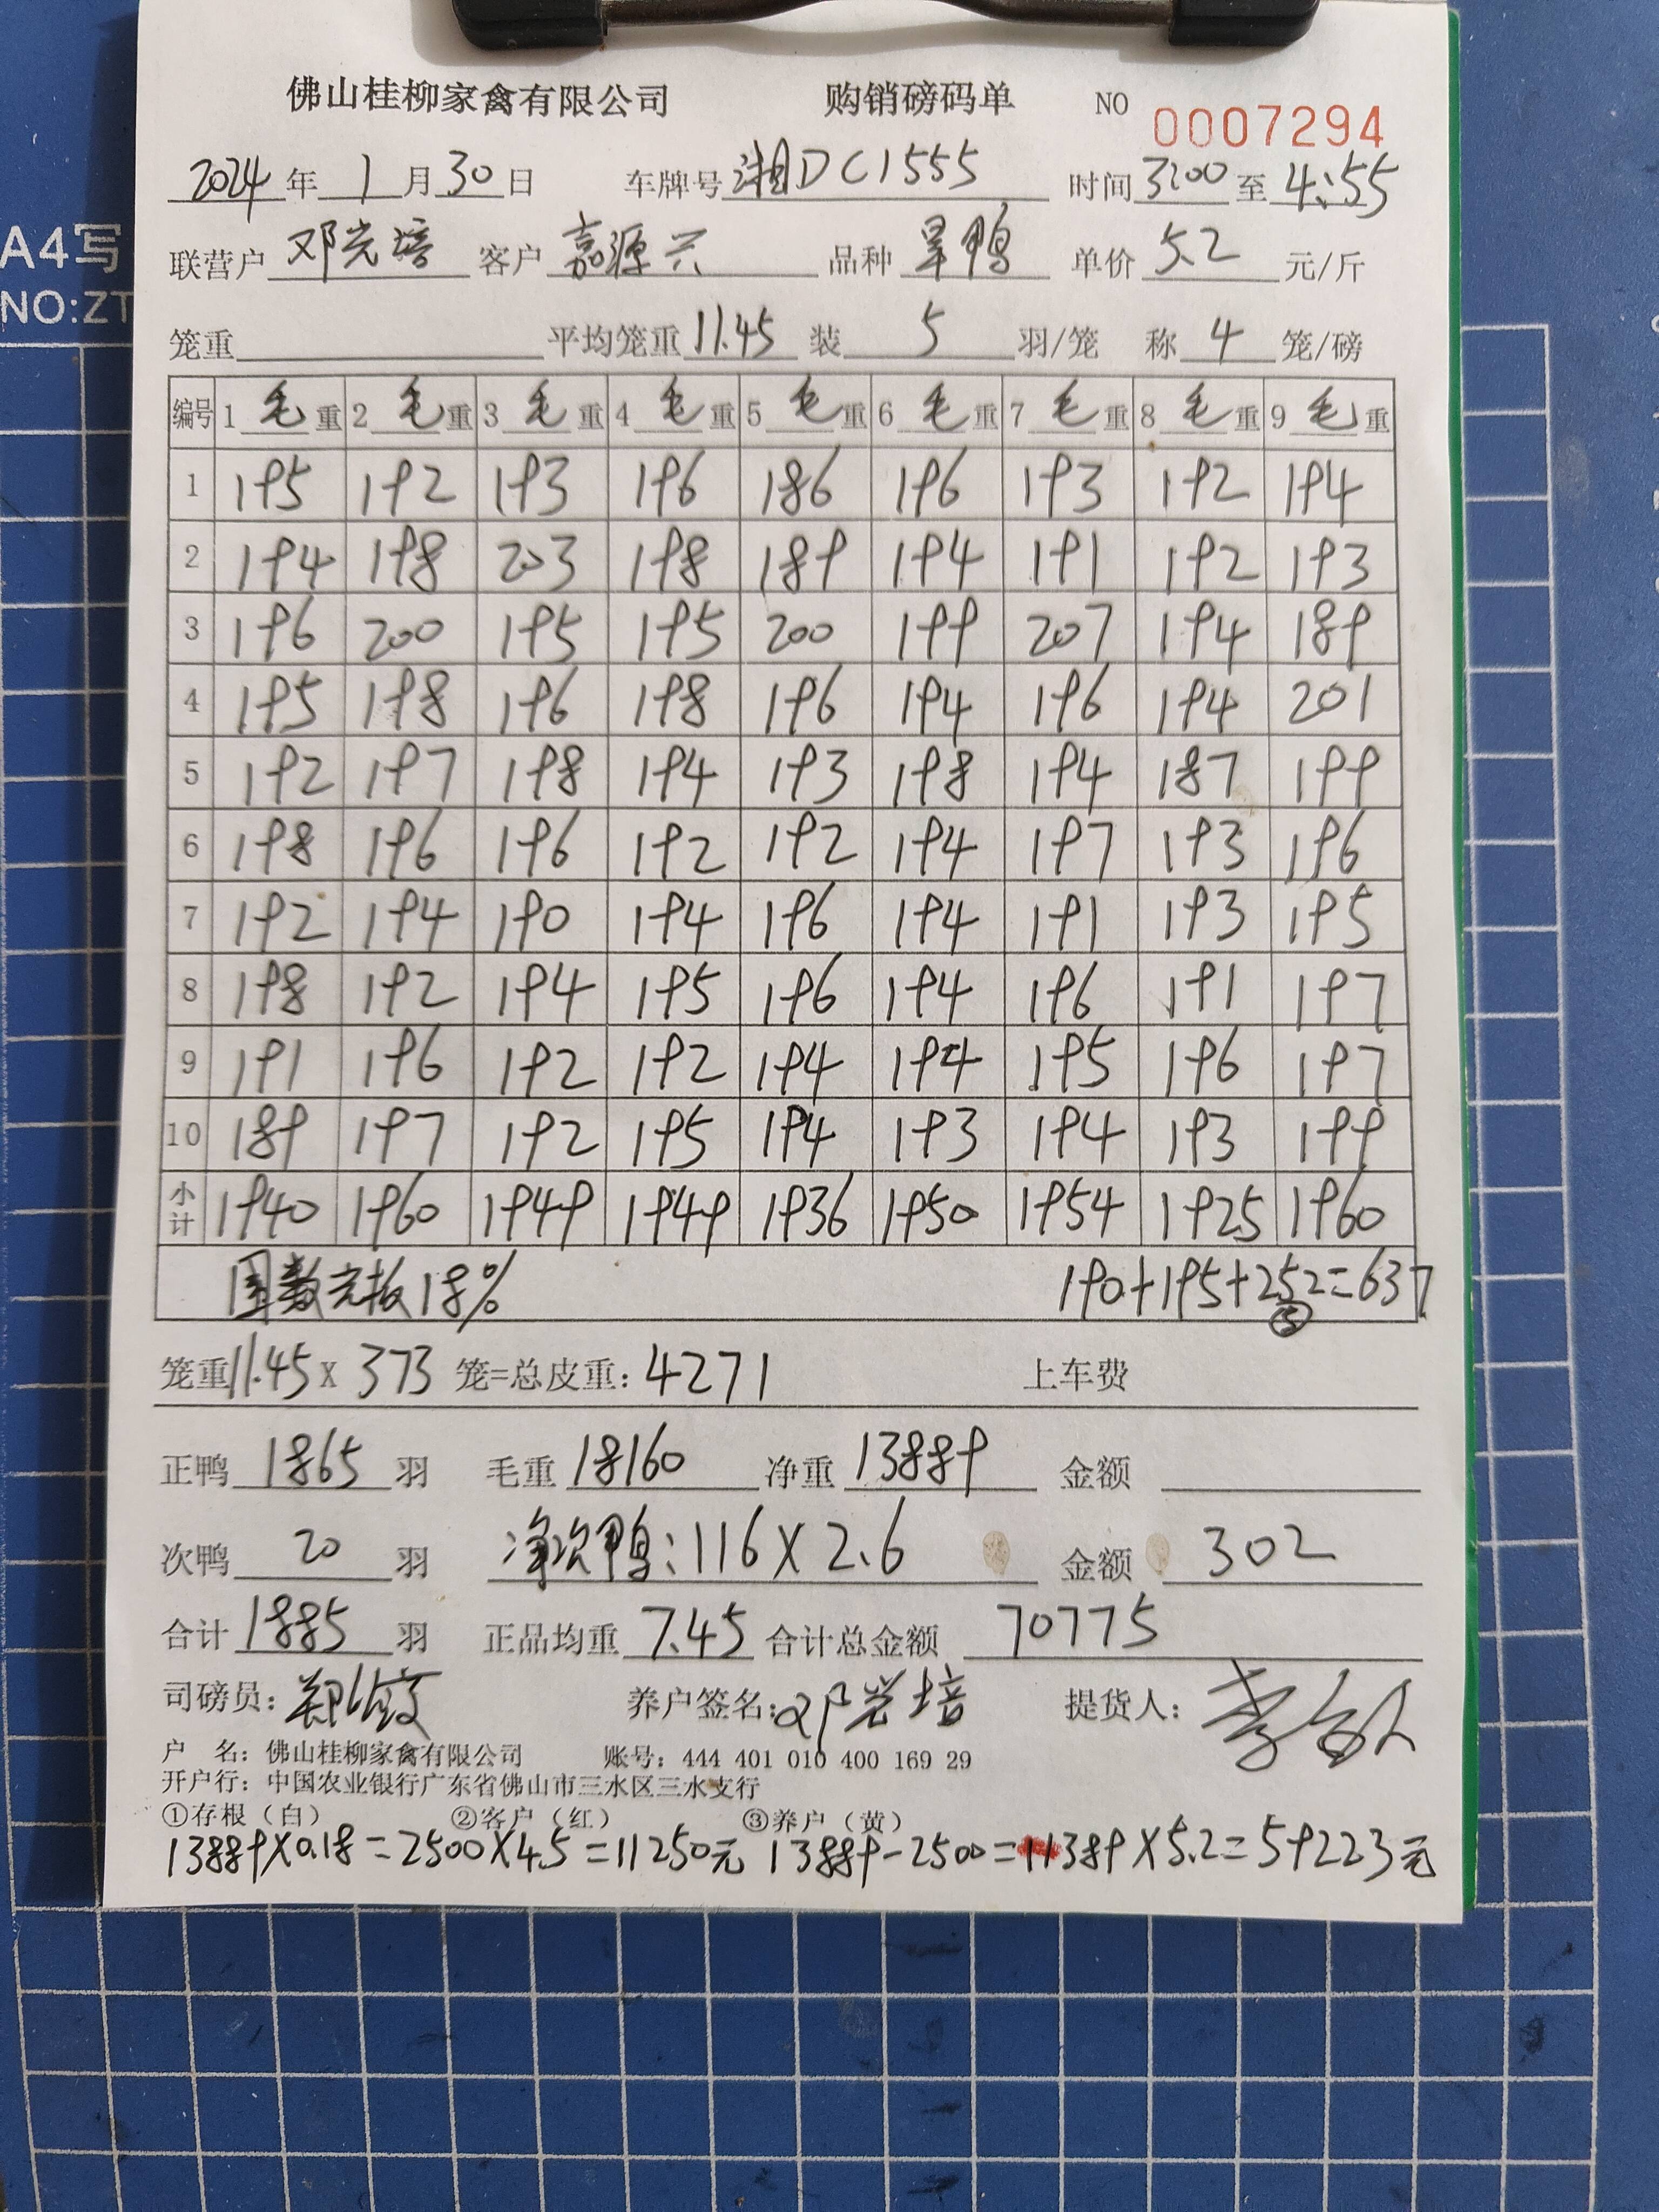 佛山桂柳家禽有限公司 购销磅码单 NO 0007294
2024年 1月30日 车牌号 湘DC1555 时间 3:00 至 4:55
A4写
NO:ZT
联营户 邓光培 客户 嘉源兴 品种 旱鸭 单价 5.2 元/斤
笼重 平均笼重 11.45 装 5 羽/笼 称 4 笼/磅
编号 1 毛重 2 毛重 3 毛重 4 毛重 5 毛重 6 毛重 7 毛重 8 毛重 9 毛重
1 195 192 193 196 186 196 193 192 194
2 194 198 203 198 189 194 191 192 193
3 196 200 195 195 200 199 207 194 189
4 195 198 196 198 196 194 196 194 201
5 192 197 198 194 193 198 194 187 199
6 198 196 196 192 192 194 197 193 196
7 192 194 190 194 196 194 191 193 195
8 198 192 194 195 196 194 196 191 197
9 191 196 192 192 194 194 195 196 197
10 189 197 192 195 194 193 194 193 199
小计 1940 1960 1949 1949 1936 1950 1954 1925 1960
18% 190+195+252=637
⑤
笼重 11.45 x 373 笼=总皮重: 4271 上车费
正鸭 1865 羽 毛重 18160 净重 13889 金额
次鸭 20 羽 净次鸭: 116 X 2.6 金额 302
合计 1885 羽 正品均重 7.45 合计总金额 70775
司磅员: 养户签名: 邓光培 提货人:
户 名: 佛山桂柳家禽有限公司 账号: 444 401 010 400 169 29
开户行: 中国农业银行广东省佛山市三水区三水支行
①存根(白) ②客户(红) ③养户(黄)
13889X0.18=2500X4.5=11250元 13889-2500=11389X5.2=59223元